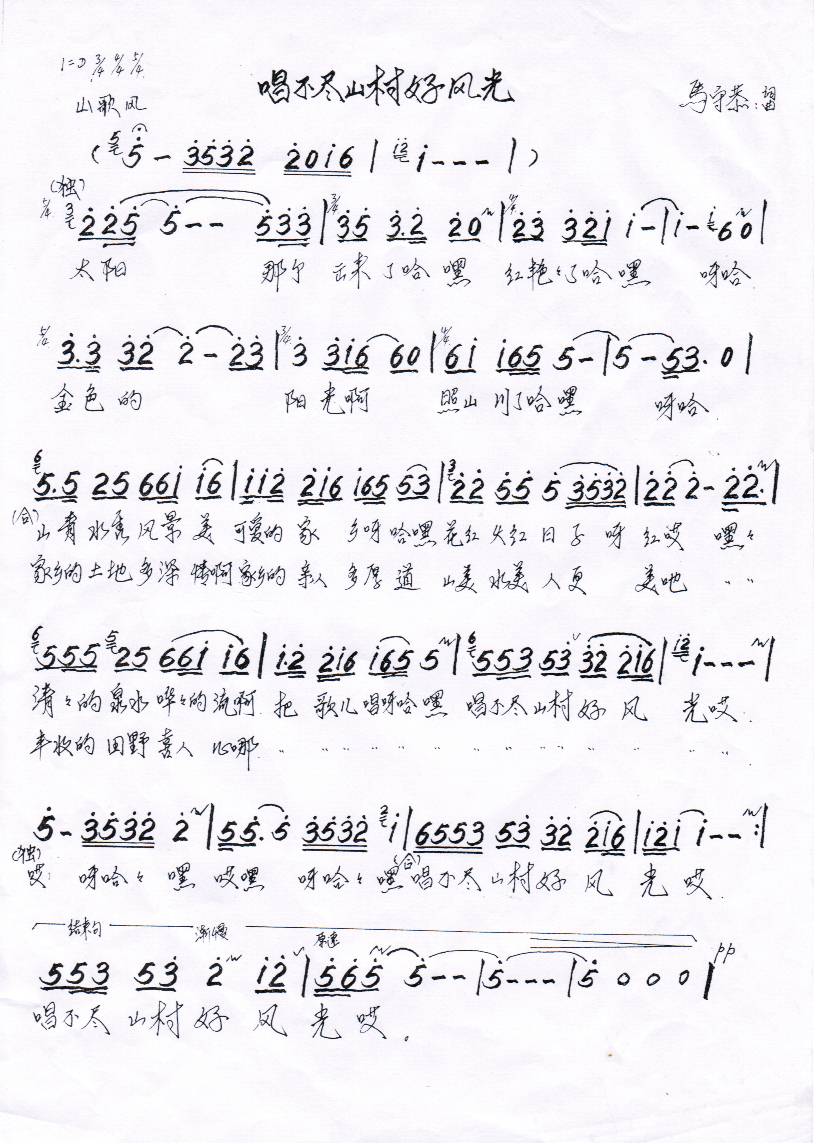 1=D 3/4 4/4 5/4
唱不尽山村好风光
山歌风
马守恭:词曲
( 5 5 - 3532 2016 | 12 i--- | )
(独)
5/4 2 225 5-- 533 | 3/4 35 3.2 20 | 4/4 23 321 i- | i- i 60 |
太阳 那个 出来了哈嘿 红艳々了哈嘿 呀哈
5/4 3.3 32 2- 23 | 3/4 3 316 60 | 4/4 6i i65 5- | 5- 53.0 |
金色的 阳光啊 照山川了哈嘿 呀哈
6 5.5 25 66i i6 | ii2 216 i65 53 | 3 22 55 5 3532 | 22 2- 22. |
(合) 山青水秀风景美 可爱的家 乡呀哈嘿花红火红日子呀 红哎 嘿々
家乡的土地多深情啊家乡的亲人 多厚道 山美水美人更 美吔 〃〃
6 555 5 25 66i i6 | i.2 216 i65 5 | 6 553 53 32 216 | 12 i--- |
清々的泉水哗々的流啊 把歌儿唱呀哈嘿 唱不尽山村好风 光哎
丰收的田野喜人心哪 〃 〃 〃 〃 〃 〃 〃 〃 〃 〃 〃 〃
5- 3532 2 | 55. 5 3532 2 i | 6553 53 32 216 | i2i i-- :|
(独) 哎: 呀哈々嘿 哎嘿 呀哈々嘿 (合) 唱不尽山村好风光哎
结束句 渐慢 原速
553 53 2 i2 | 565 5-- | 5--- | 5 0 0 0 | pp
唱不尽山村好风光哎。